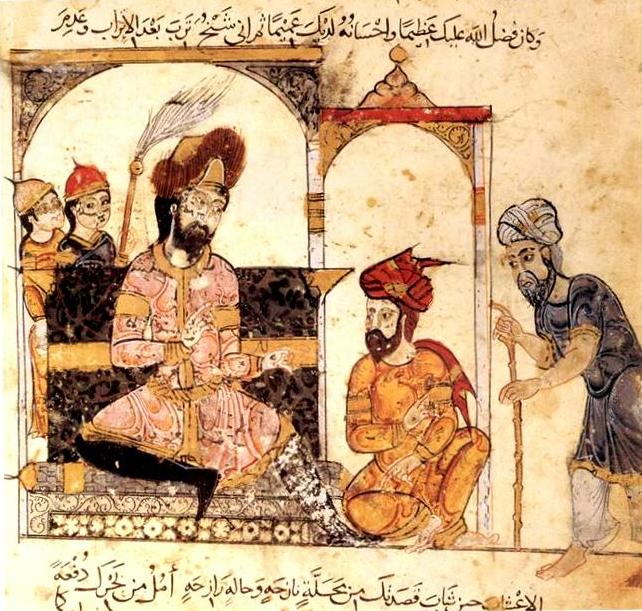 وكان فضل الله عليك عظيما واحسانه لديك عميما ثم اني شيخ ترب بعد الاتراب وعدم
الاعشاب حين شاب قصدتك من محلة نازحه وحاله رازحه آمل من بحرك دفعة